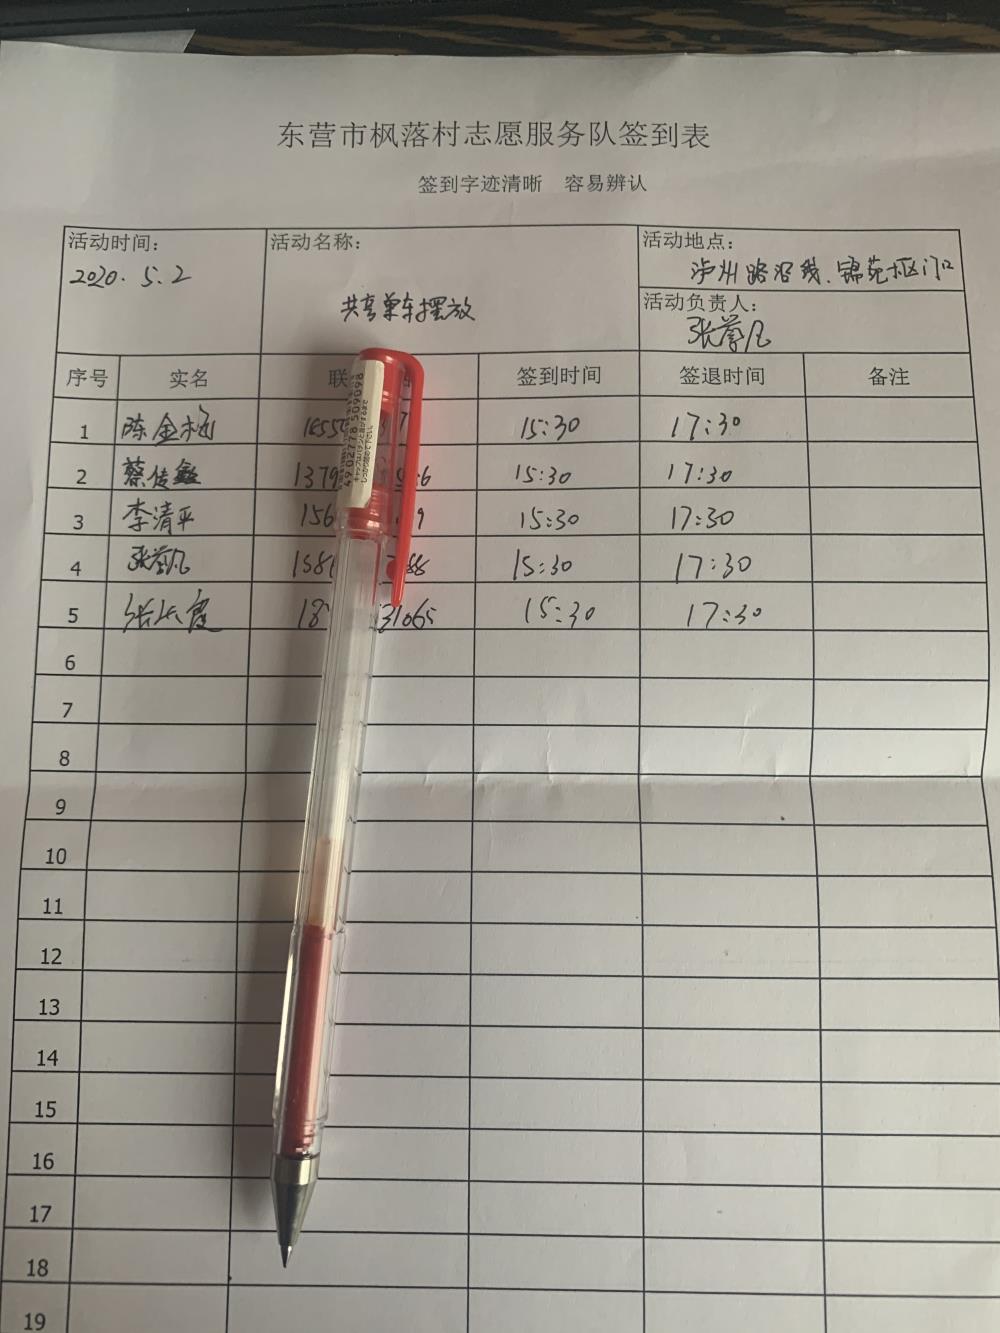 东营市枫落村志愿服务队签到表
签到字迹清晰 容易辨认
活动时间： 活动名称： 活动地点：
2020.5.2 泸州路沿线.锦苑小区门口
共享单车摆放 活动负责人：
张蓉凡
序号 实名 联 签到时间 签退时间 备注
1 陈金梅 15:30 17:30
2 蔡传鑫 15:30 17:30
3 李清平 15:30 17:30
4 张蓉凡 15:30 17:30
5 张长霞 15:30 17:30
6
7
8
9
10
11
12
13
14
15
16
17
18
19
4902778 509098